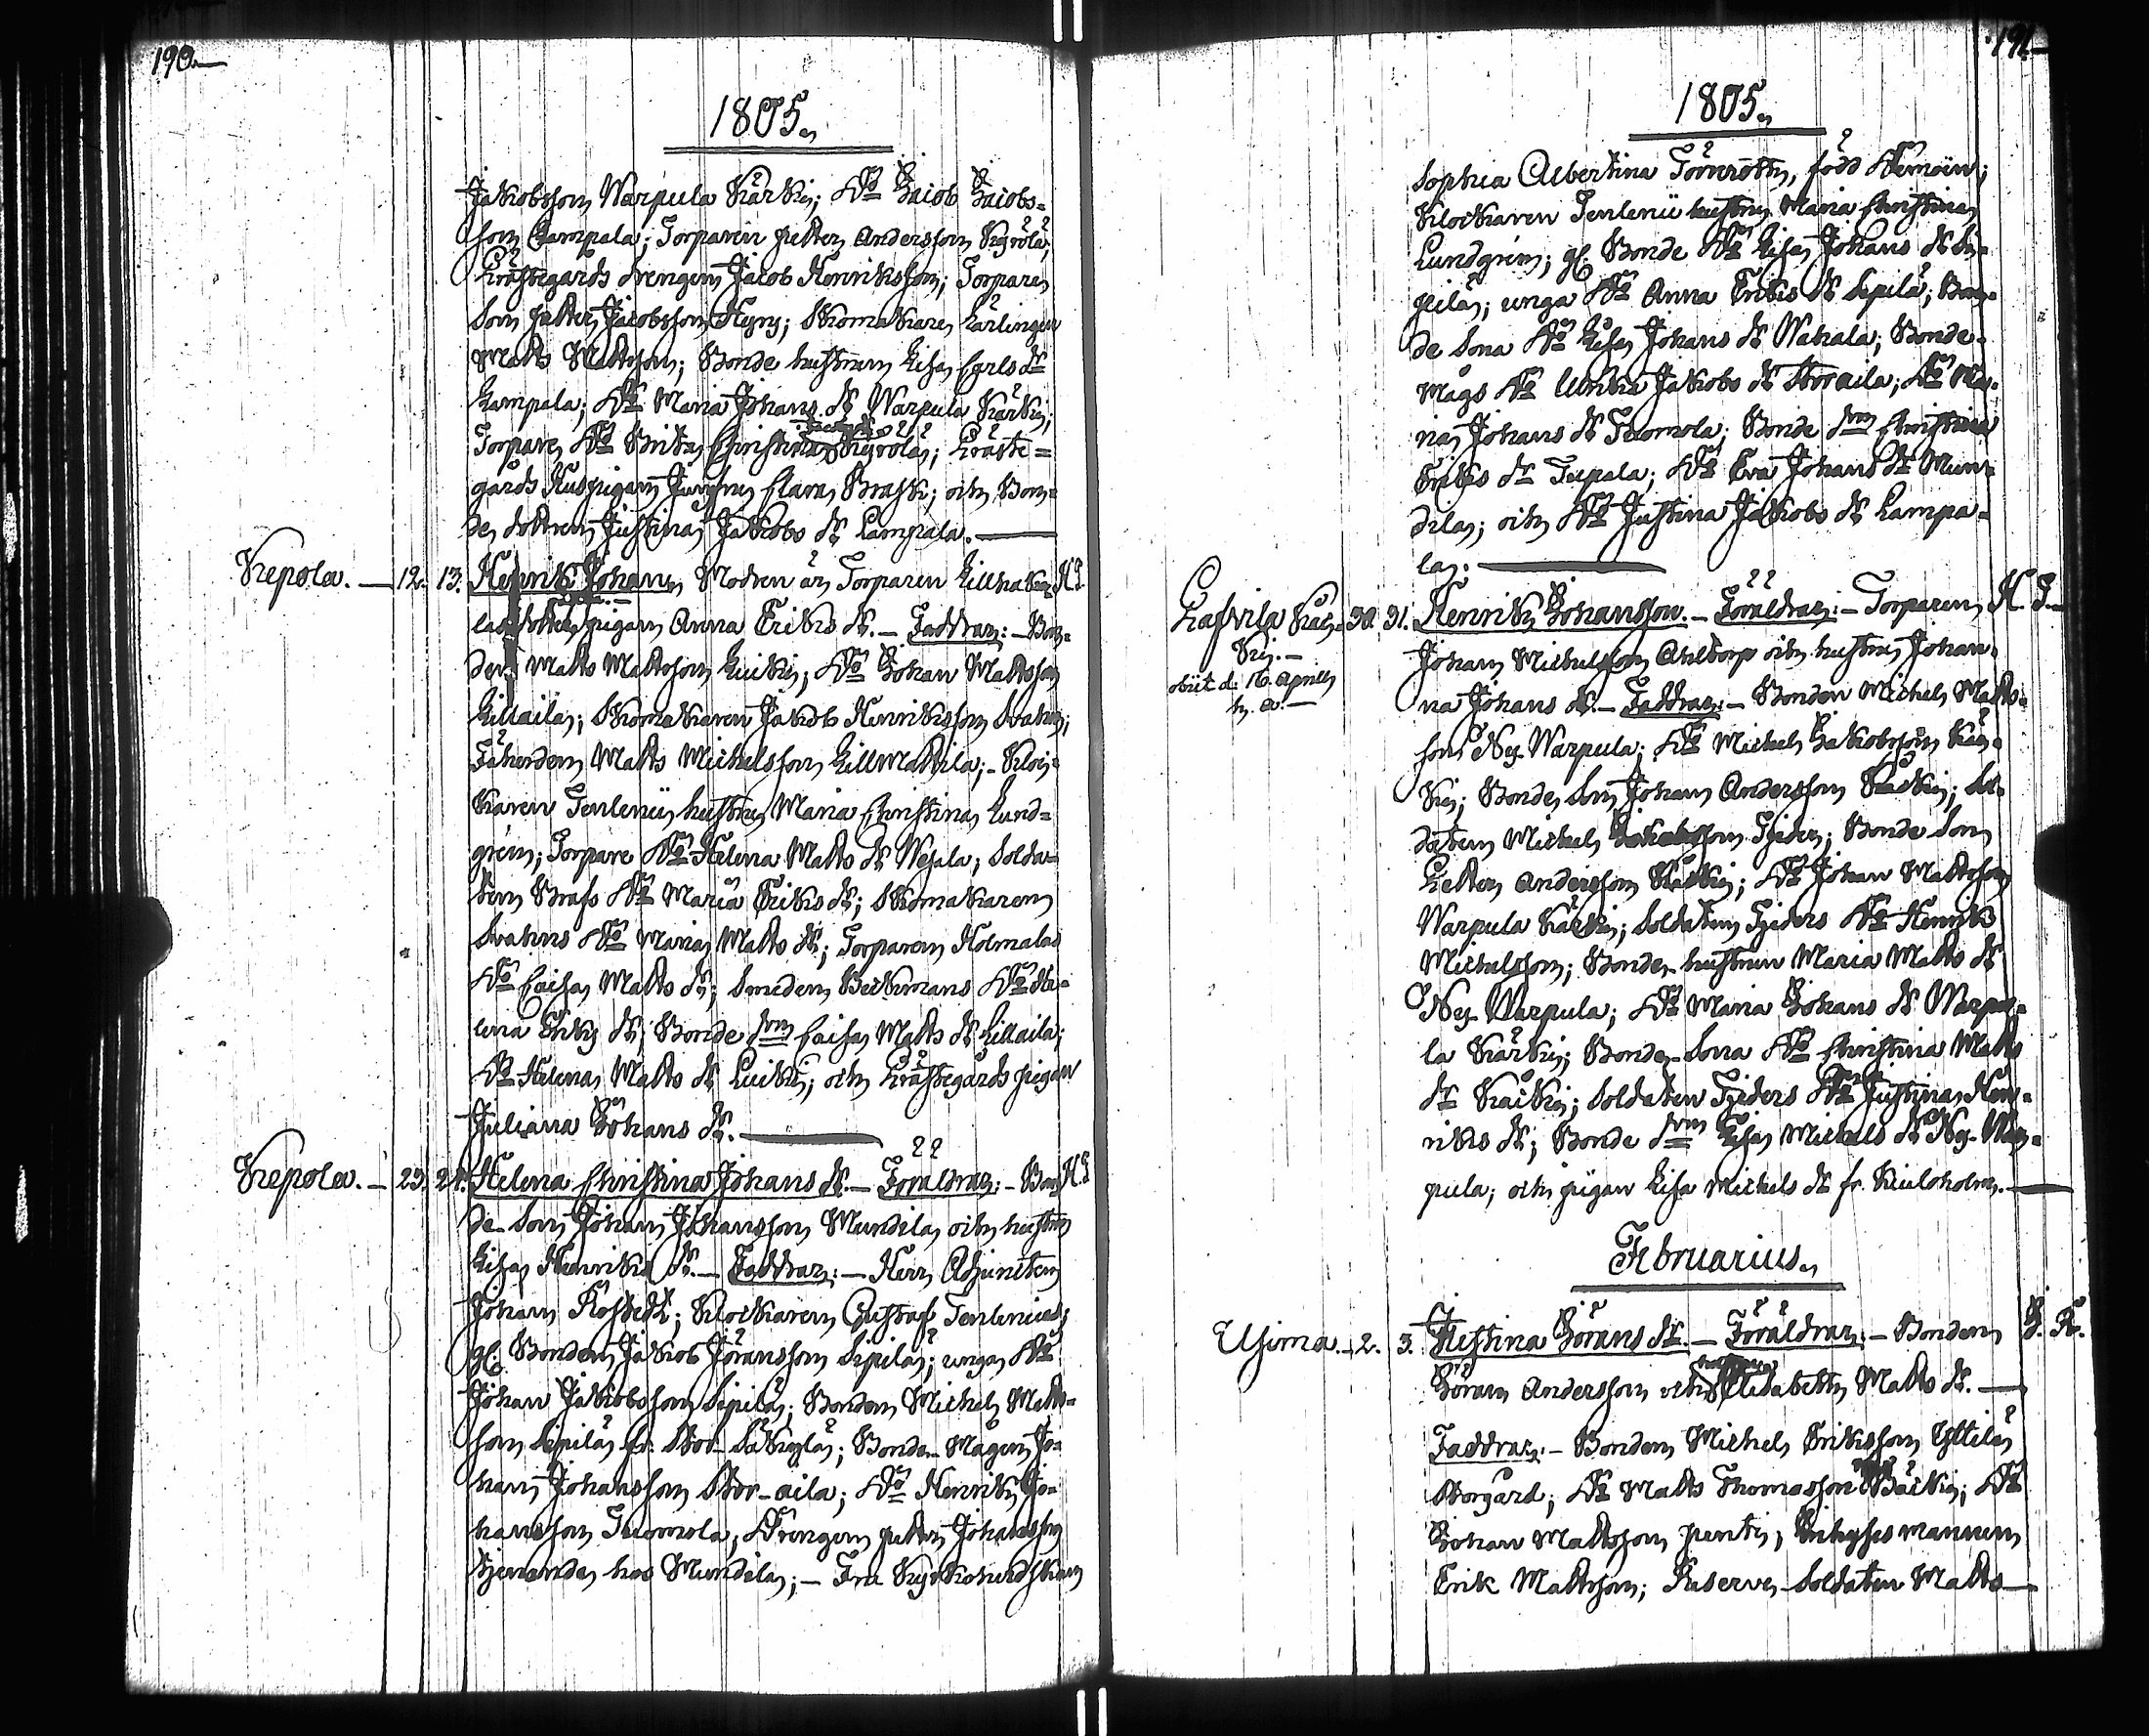 190.
1805.
Jakobsson Warpula Kärki; D:o Jacob Jacobs-
son Lampala; Torparen Petter Andersson Kyrölä;
Prästegårds drengen Jacob Henriksson; Torpare
Son Petter Jacobsson Hyry; Skomakare Lärlingen
Matts Mattsson; Bonde hustrun Lisa Carls dr
Lampala; D:o Maria Johans dr Warpula Kärki;
Torpare D:o Brita Christina Kyrölä; Präste-
gårds Huspigan Jungfru Clara Brask; och Bon-
de dottren Justina Jakobs dr Lampala.
Repola. 12. 13. Henrik Johan, Modren är Torparen Lillhakka- H. G.
las dotter pigan Anna Eriks dr. Faddrar: Bon-
den Matts Mattsson Luikki; D:o Johan Mattsson
Lillaila; Skomakaren Jakob Henriksson Svahn;
Fäherden Matts Michelsson Lillmattila; Kloc-
karen Tenlenii hustru Maria Christina Lund-
grén; Torpare D:o Helena Matts dr Wesala; Solda-
ten Brass D:o Maria Eriks dr; Skomakaren
Svahns D:o Maria Matts dr; Torparen Holmalas
D:o Caisa Matts dr; Smeden Beckmans D:o He-
lena Eriks dr; Bonde drn Caisa Matts dr Lillaila;
D:o Helena Matts dr Luikki; och Prästegårds pigan
Juliana Johans dr.
Repola. 23. 24. Helena Christina Johans dr. Föräldrar: Bon- H. G.
de Son Johan Johansson Mundila och hustru
Lisa Henriks dr. Faddrar: Herr Adjuncten
Johan Rostedt; Klockaren Gustaf Tenlenius;
gl. Bonden Jakob Jöransson Sipilä; unga D:o
Johan Jakobsson Sipilä; Bonden Michel Matts-
son Sipilä fr. Stor Säkylä; Bonde Mågen Jo-
han Johansson Stor-aila; D:o Henrik Jo-
hansson Tuomola; Drengen Petter Johansson
tjenande hos Mundila; Fru Kyrkoherdskan
191.
1805.
Sophia Albertina Törnroth, född Hemoin;
Klockaren Tenlenii hustru Maria Christina
Lundgrén; gl. Bonde D:o Lisa Johans dr Si-
pilä; unga D:o Anna Eriks dr Sipilä; Bon-
de Sona D:o Lisa Johans dr Wahala; Bonde-
Mågs D:o Ulrika Jakobs dr Storaila; D:o Ma-
ria Johans dr Tuomola; Bonde drn Christina
Eriks dr Tupala; D:o Eva Johans dr Mun-
dila; och D:o Justina Jakobs dr Lampa-
la.
30. 31. Henrik Johansson. Föräldrar: Torparen H. G.
obiit d. 16. Aprill
h. a.
Johan Michelsson Ahltorp och hustru Johan-
na Johans dr. Faddrar: Bonden Michel Matts-
son Ny-Warpula; D:o Michel Jakobsson Kär-
ki; Bonde Son Johan Andersson Kärki; Sol-
daten Michel Tjider; Bonde Son
Petter Andersson Kärki; D:o Johan Mattsson
Warpula Kärki; Soldaten Tjiders D:o Henrik
Michelsson; Bonde hustrun Maria Matts dr
Ny-Warpula; D:o Maria Johans dr Warpu-
la Kärki; Bonde Sona D:o Christina Matts
dr Kärki; Soldaten Tjiders D:o Justina Hen-
riks dr; Bonde drn Lisa Michels dr Ny-War-
pula; och pigan Lisa Michels dr fr. Kiuloholm.
Februarius.
Ujima. 2. 3. Justina Jörans dr. Föräldrar: Bonden J. R.
Jöran Andersson och hustrun Elisabeth Matts dr.
Faddrar: Bonden Michel Eriksson Yttilä
Storgård; D:o Matts Thomasson Bäcki; D:o
Johan Mattsson Pentti; Inhyses mannen
Erik Mattsson; Reserve Soldaten Matts